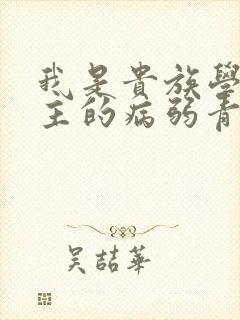 我是貴族學
主的病弱青
吴喆華